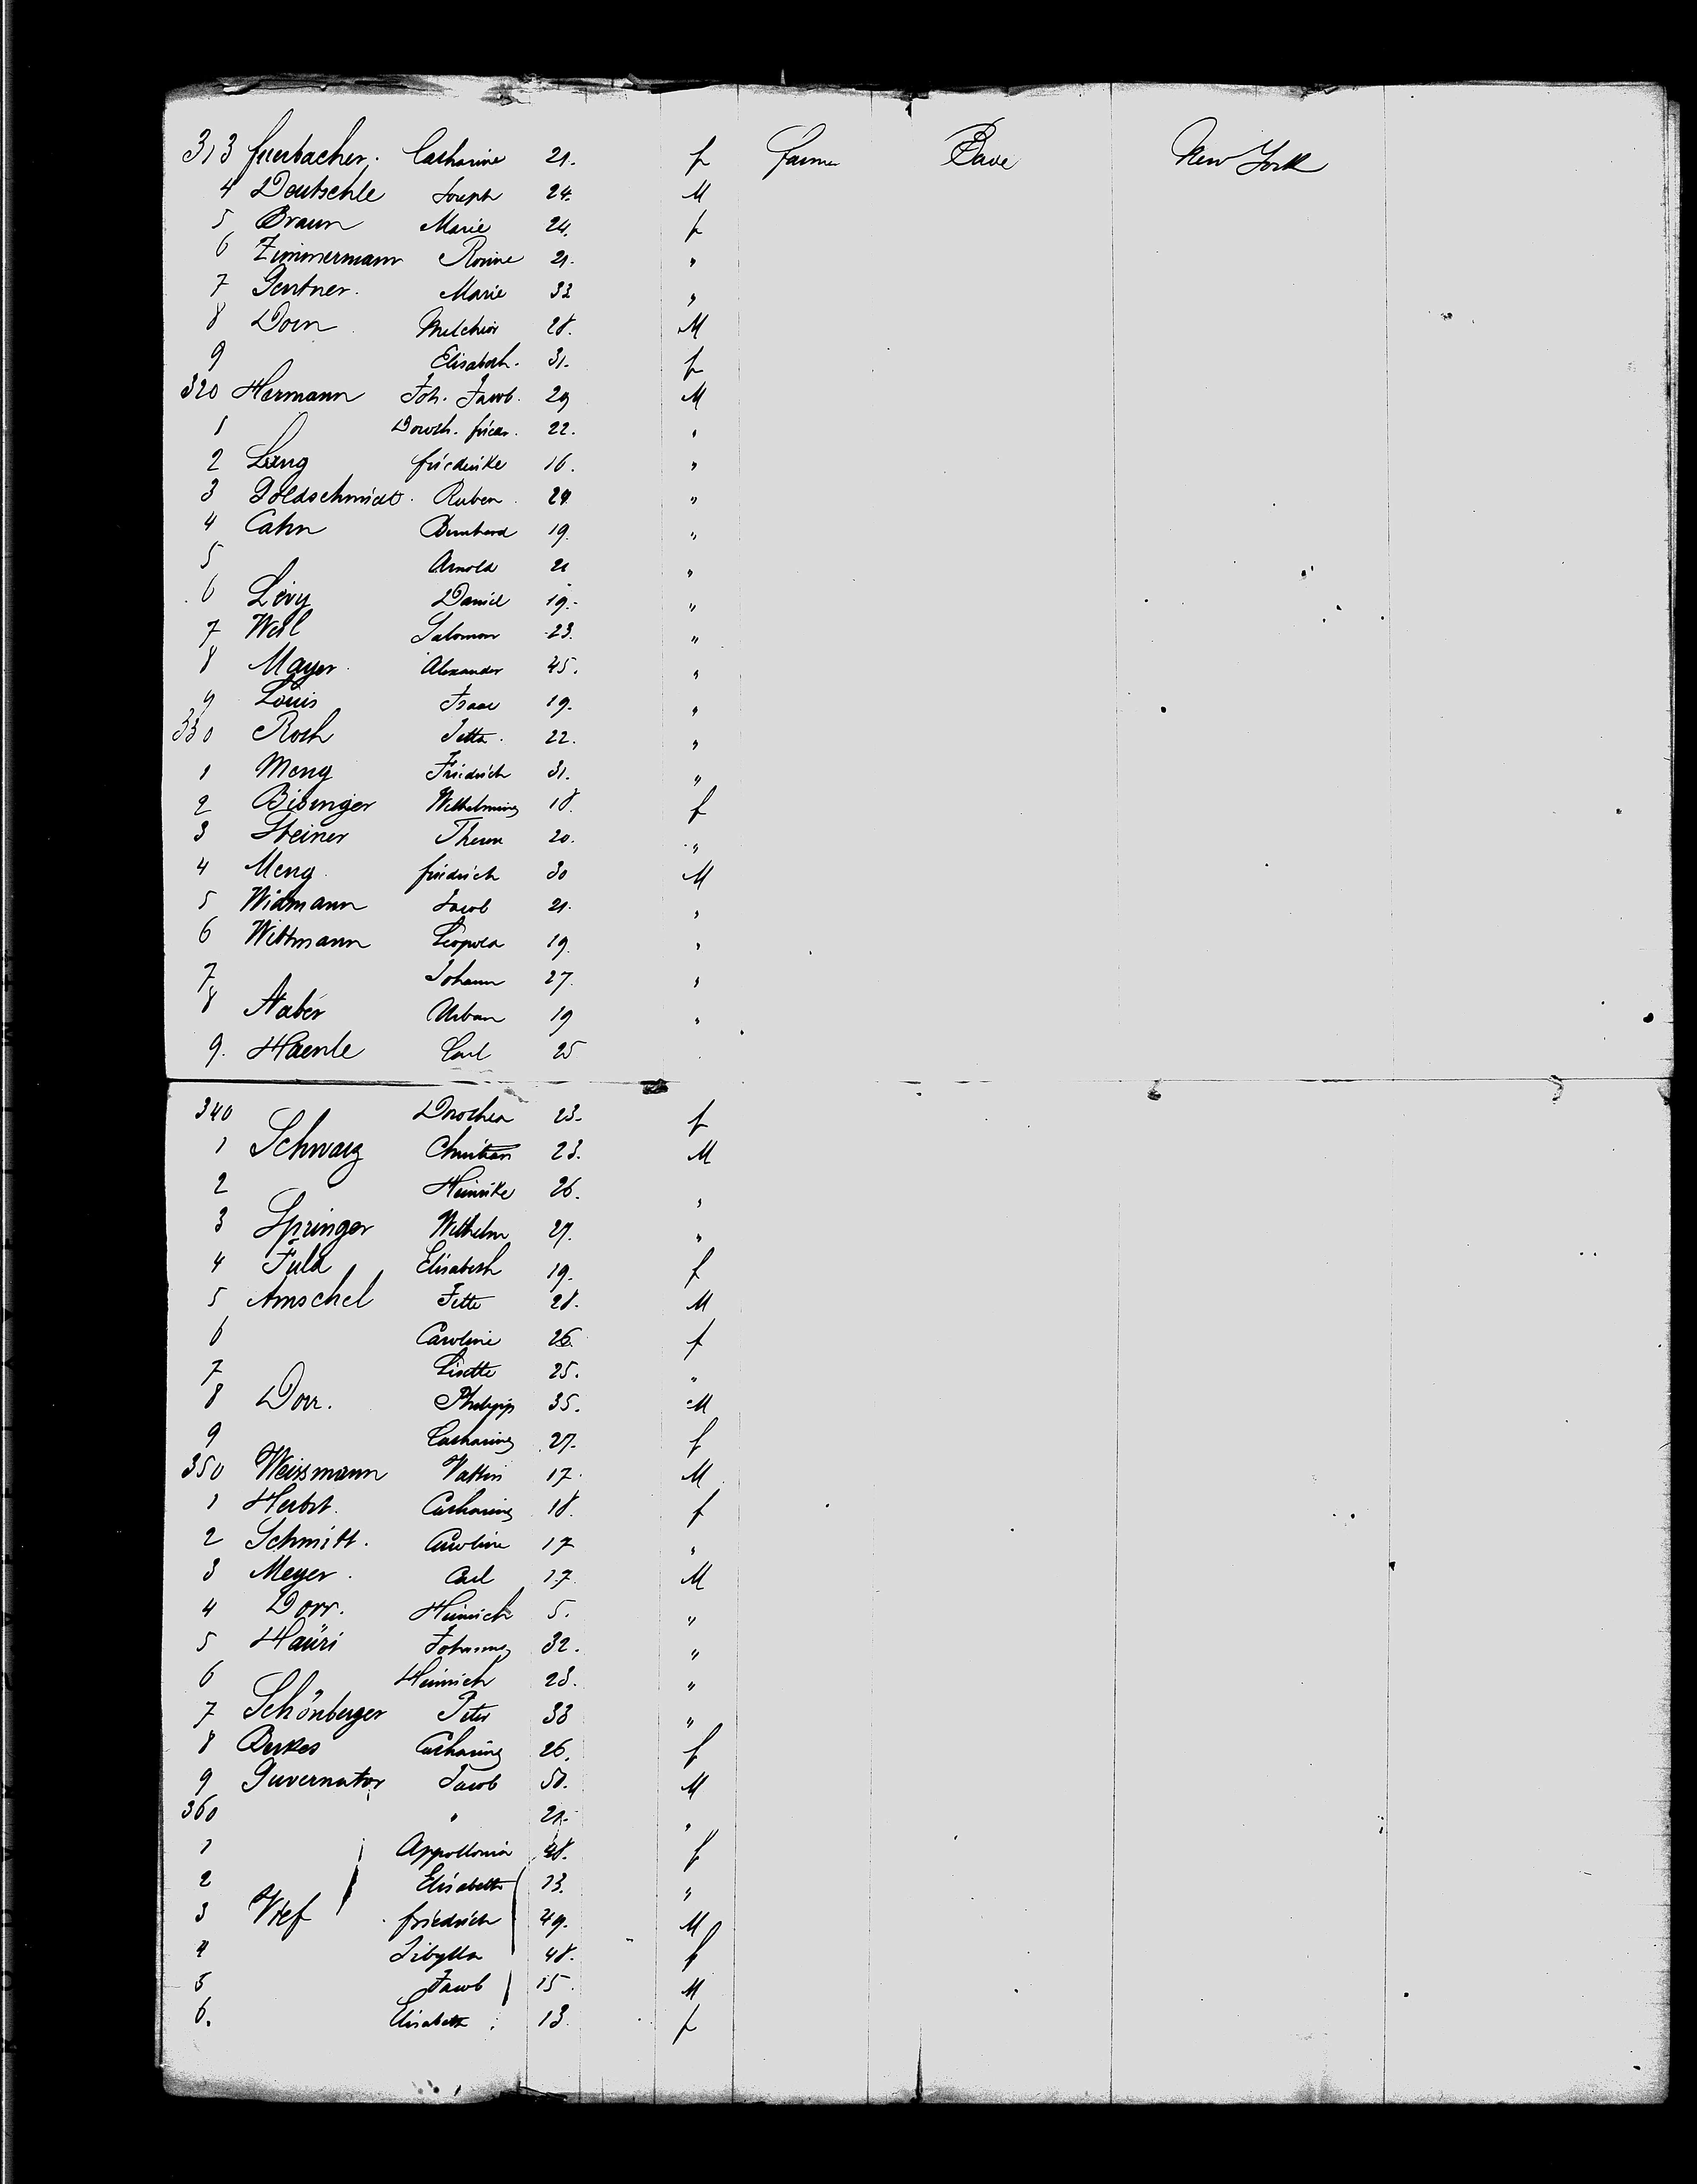 313 Feuerbacher. Catharine 21. f Farmer Bave New York
4 Deutschle Joseph 24. M
5 Braun Marie 24. f
6 Zimmermann Rosine 21. "
7 Gentner. Marie 33 "
8 Dorn Melchior 28. M
9 Elisabeth. 31. f
320 Hermann Joh. Jacob. 29 M
1 Doroth. Frieder. 22. "
2 Lang Friederike 16. "
3 Goldschmidt. Ruben 24 "
4 Cahn Bernhard 19. "
5 Arnold 21 "
6 Levy Daniel 19. "
7 Weil Salomon 23. "
8 Mayer. Alexander 45. "
9 Louis Isaac 19. "
330 Roth Jette. 22. "
1 Meng Friedrich 31. "
2 Bisinger Wilhelmine 18. f
3 Steiner Therese 20. "
4 Meng Friedrich 30 M
5 Widmann Jacob 21. "
6 Wittmann Leopold 19. "
7 Johann 27. "
8 Urban 19 "
9. Haenle Carl 25
340 Dorothea 23. f
1 Schwarz Christian 23. M
2 Heinrike 26. "
3 Springer Wilhelm 27. "
4 Fuld Elisabeth 19. f
5 Amschel Jette 28. M
6 Caroline 26. f
7 Lisette 25. "
8 Dorr. Philipp 35. M
9 Catharine 27. f
350 Weissmann 17. M
1 Herbst. Catharine 18. f
2 Schmitt. Caroline 17 "
3 Meyer. Carl 17. M
4 Dorr. Heinrich 5. "
5 Haüri Johannes 32. "
6 Heinrich 23. "
7 Schönberger Peter 33 "
8 Catharine 26. f
9 Guvernator Jacob 50. M
360 " 21. "
1 Appollonia 48. f
2 Elisabeth 13. "
3 Friedrich 49. M
4 Sibylla 48. f
5 Jacob 15. M
6. Elisabeth 13. f